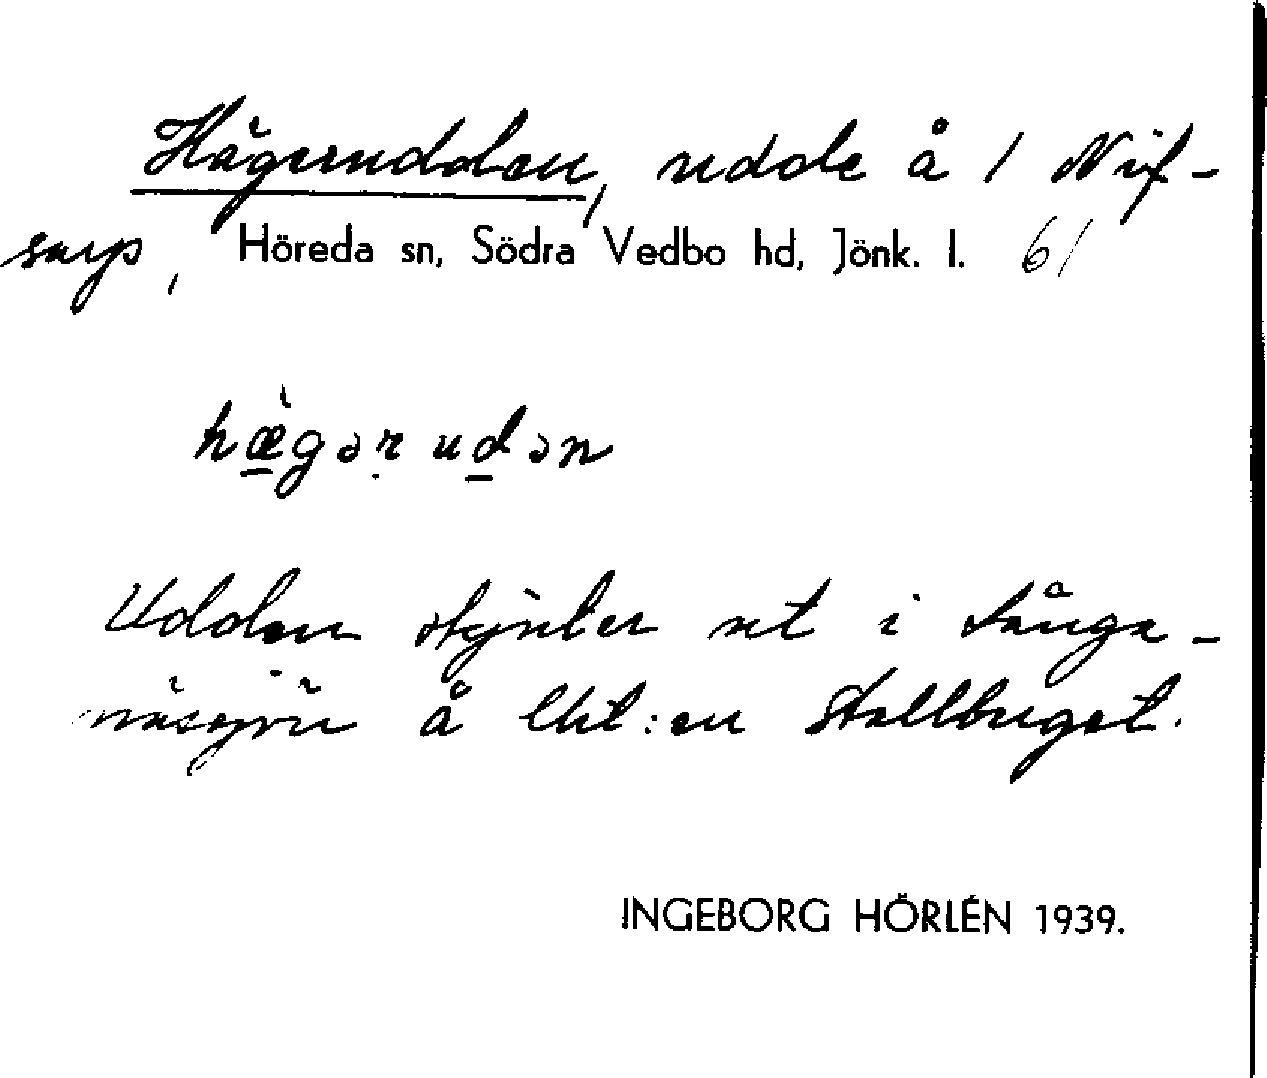 Hägerudden, udde å 1 Nif-
sarp, Höreda sn, Södra Vedbo hd, Jönk. l. 61
hægərudən
Udden skjuter ut i Långa-
näsasjön å Utt:en Stallbuget.
INGEBORG HÖRLÉN 1939.